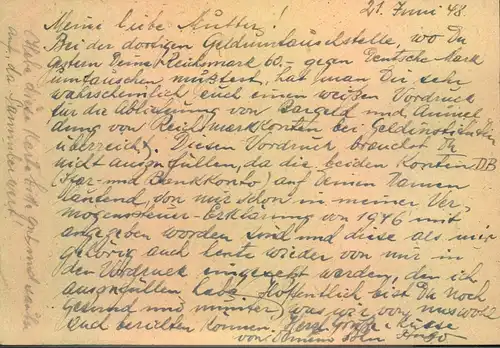 21. Juni 48.
Meine liebe Mutter!
Bei der dortigen Geldumtauschstelle, wo Du
gestern Deine Reichsmark 60.- gegen Deutsche Mark
umtauschen mußtest, hat man Dir sehr
wahrscheinlich auch einen weißen Vordruck
für die Ablieferung von Bargeld und Anmel
dung von Reichsmarkkonten bei Geldinstituten
überreicht. Diesen Vordruck brauchst Du
nicht auszufüllen, da die beiden Konten
(Spar- und Bankkonto) auf Deinen Namen
lautend, von mir schon in meiner Ver
mögensteuer-Erklärung von 1946 mit
angegeben worden sind und diese als mir
gehörig auch heute wieder von mir in
den Vordruck eingesetzt werden, den ich
auszufüllen habe. Hoffentlich bist Du noch
gesund und munter, was wir von uns wohl
auch berichten können. Herzl. Grüße & Küsse
von Deinem Sohn
Hebe diese Karte bitte gut und
auf der Sammler